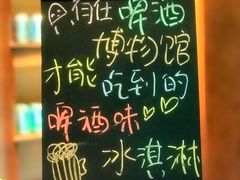 只有在啤酒
博物馆
才能吃到的
啤酒味
冰淇淋